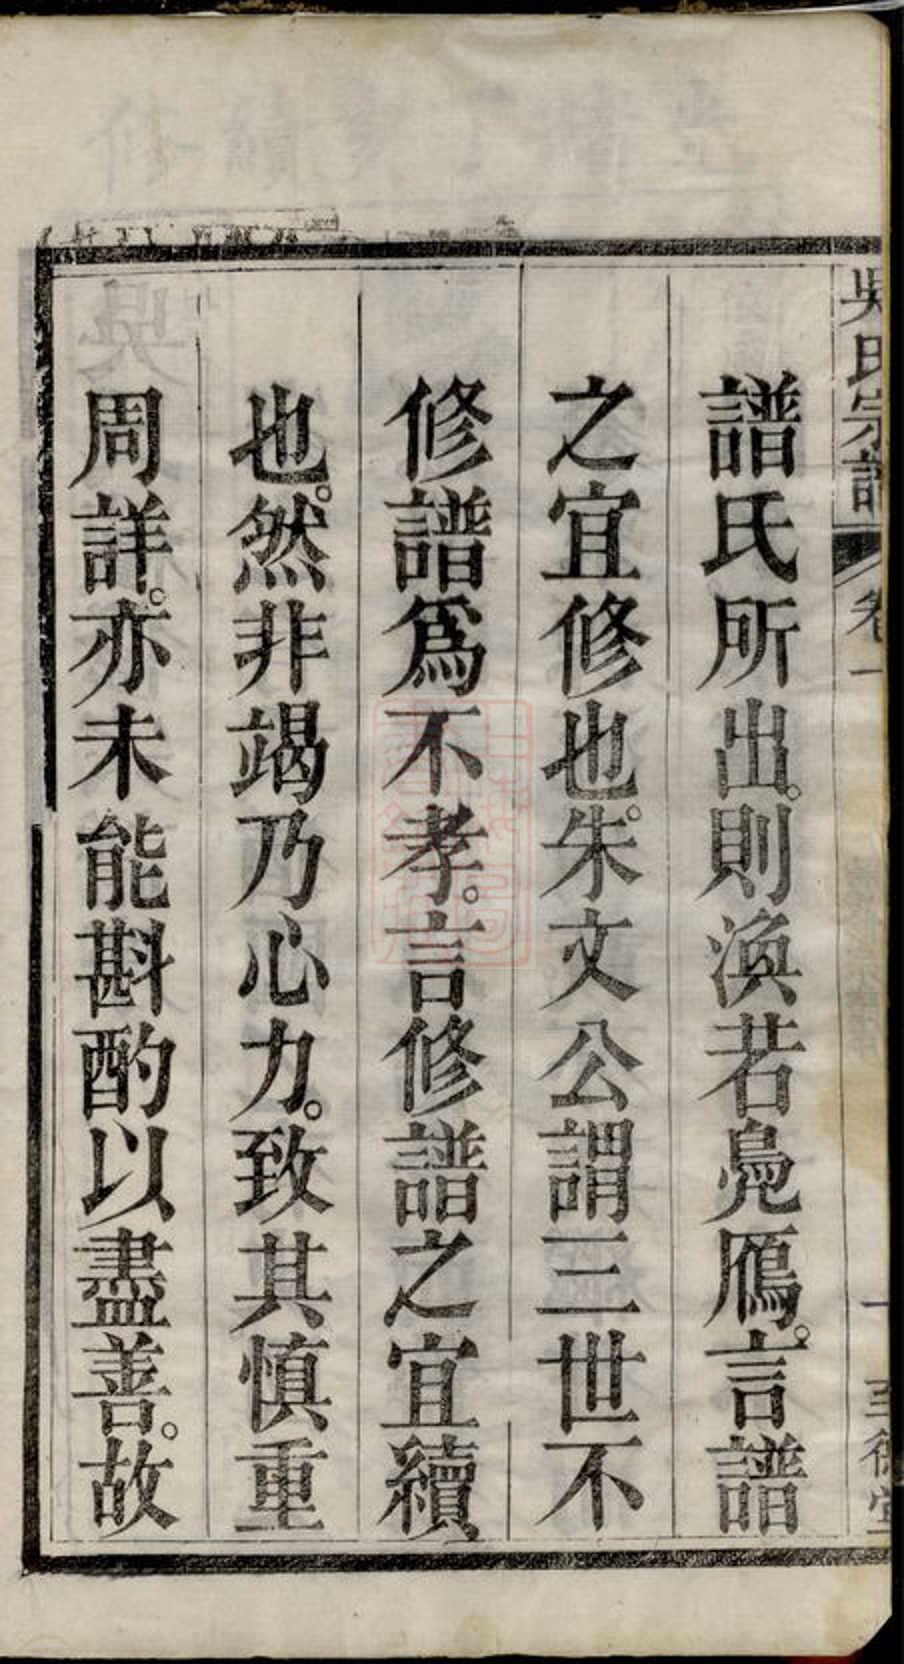 吳氏宗譜 卷一 一 至德堂
譜氏所出。則渙若鳧鴈。言譜
之宜修也。朱文公謂三世不
修譜爲不孝。言修譜之宜續
也。然非竭乃心力。致其慎重
周詳。亦未能斟酌以盡善。故